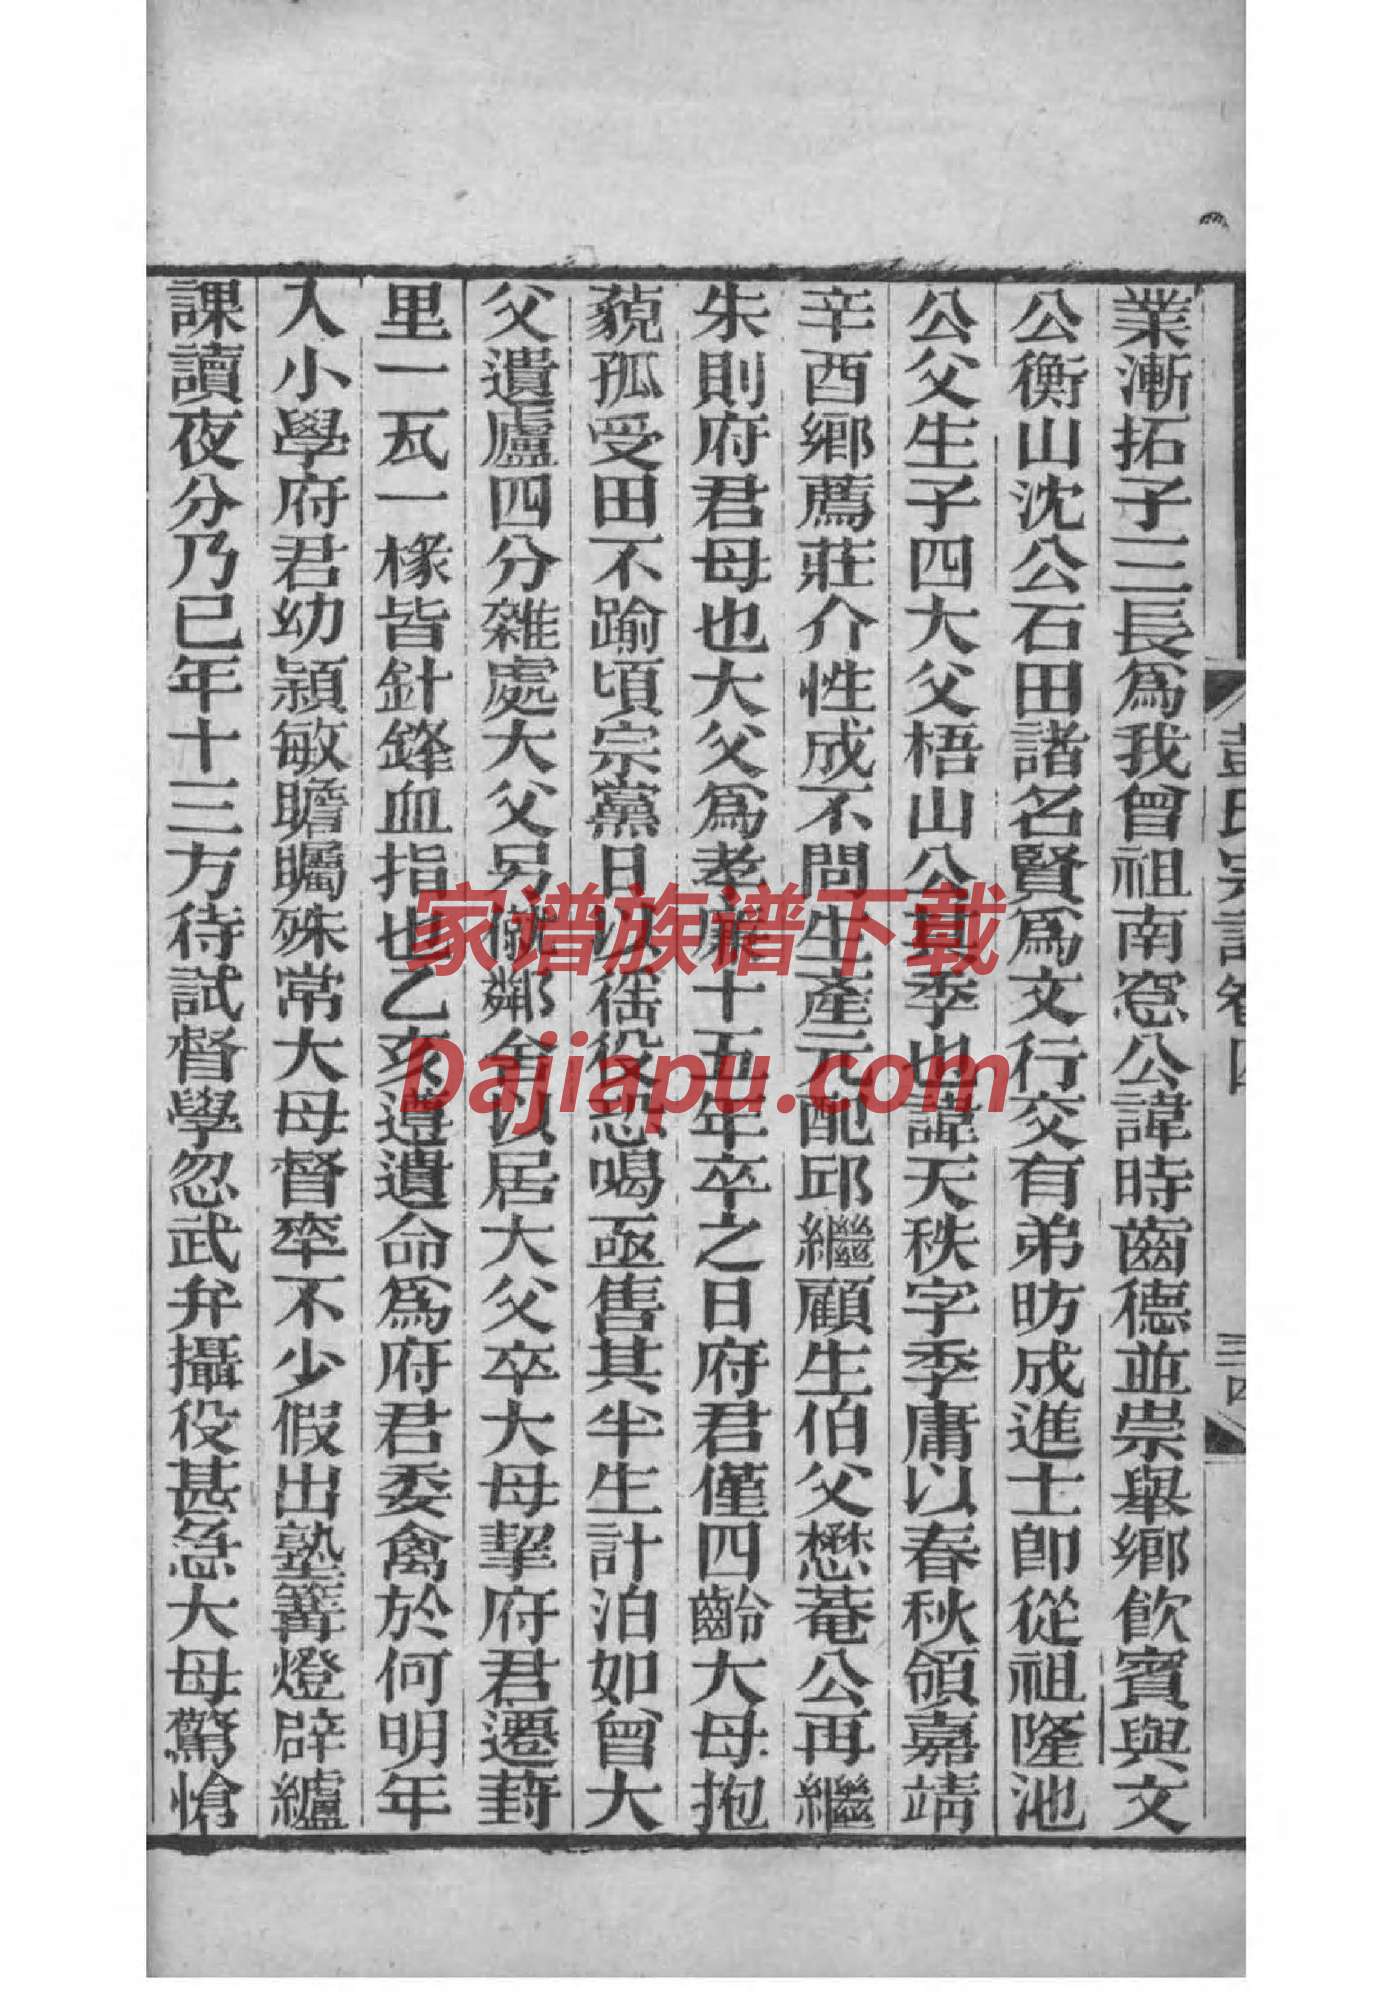 彭氏宗譜卷四
三四
業漸拓子三長爲我曾祖南窓公諱時齒德並崇舉鄉飲賓與文
公衡山沈公石田諸名賢爲文行交有弟昉成進士卽從祖隆池
公父生子四大父梧山公其季也諱天秩字季庸以春秋領嘉靖
辛酉鄉薦莊介性成不問生產元配邱繼顧生伯父懋菴公再繼
朱則府君母也大父爲孝廉十五年卒之日府君僅四齡大母抱
藐孤受田不踰頃宗黨日以徭役恐喝亟售其半生計泊如曾大
父遺廬四分雜處大父另僦鄰舍以居大父卒大母挈府君遷葑
里一瓦一椽皆針鋒血指也乙亥遵遺命爲府君委禽於何明年
入小學府君幼穎敏瞻矚殊常大母督率不少假出塾篝燈辟纑
課讀夜分乃已年十三方待試督學忽武弁攝役甚急大母驚愴
家谱族谱下载
Dajiapu.com